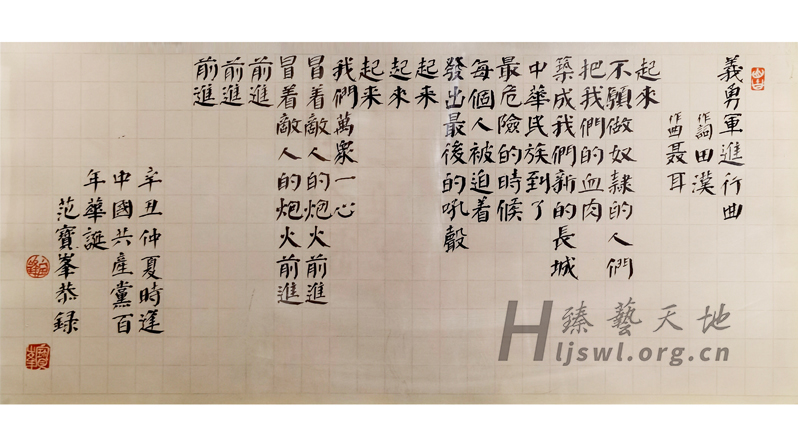 義勇軍進行曲
作詞田漢
作曲聶耳
起来
不願做奴隸的人們
把我們的血肉
築成我們新的長城
中華民族到了
最危險的時候
每個人被迫着
發出最後的吼聲
起来
起来
起来
我們萬衆一心
冒着敵人的炮火前進
冒着敵人的炮火前進
前進
前進
前進
辛丑仲夏時逢
中國共產黨百
年華誕
范寶峯恭録
臻藝天地
Hljswl.org.cn